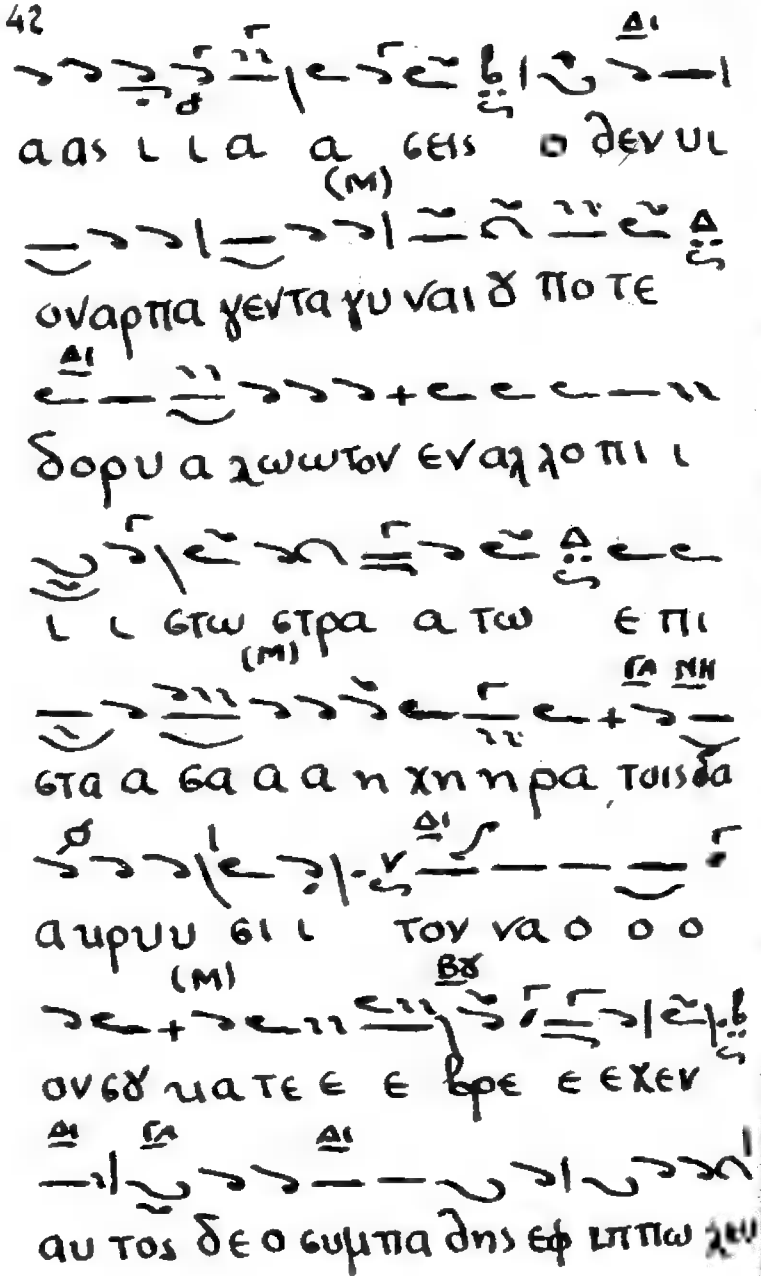 42
Δι
α ας ι ι α α σεις ο θεν υι
(Μ)
ον αρπα γεντα γυ ναι ȣ πο τε
Δ
Δι
δορυ α λωωτον εν αλλο πι ι
ι ι στω στρα α τω ε πι
Δ
(Μ)
ΓΑ ΝΗ
στα α σα α α η χη η ρα τοις δα
Δι
α κρυυ σι ι τον να ο ο ο
(Μ)
Βȣ
ον σȣ κα τε ε ε βρε ε εχεν
Δι ΓΑ Δι
αυ τος δε ο συμπα θης εφ ιππω λευ